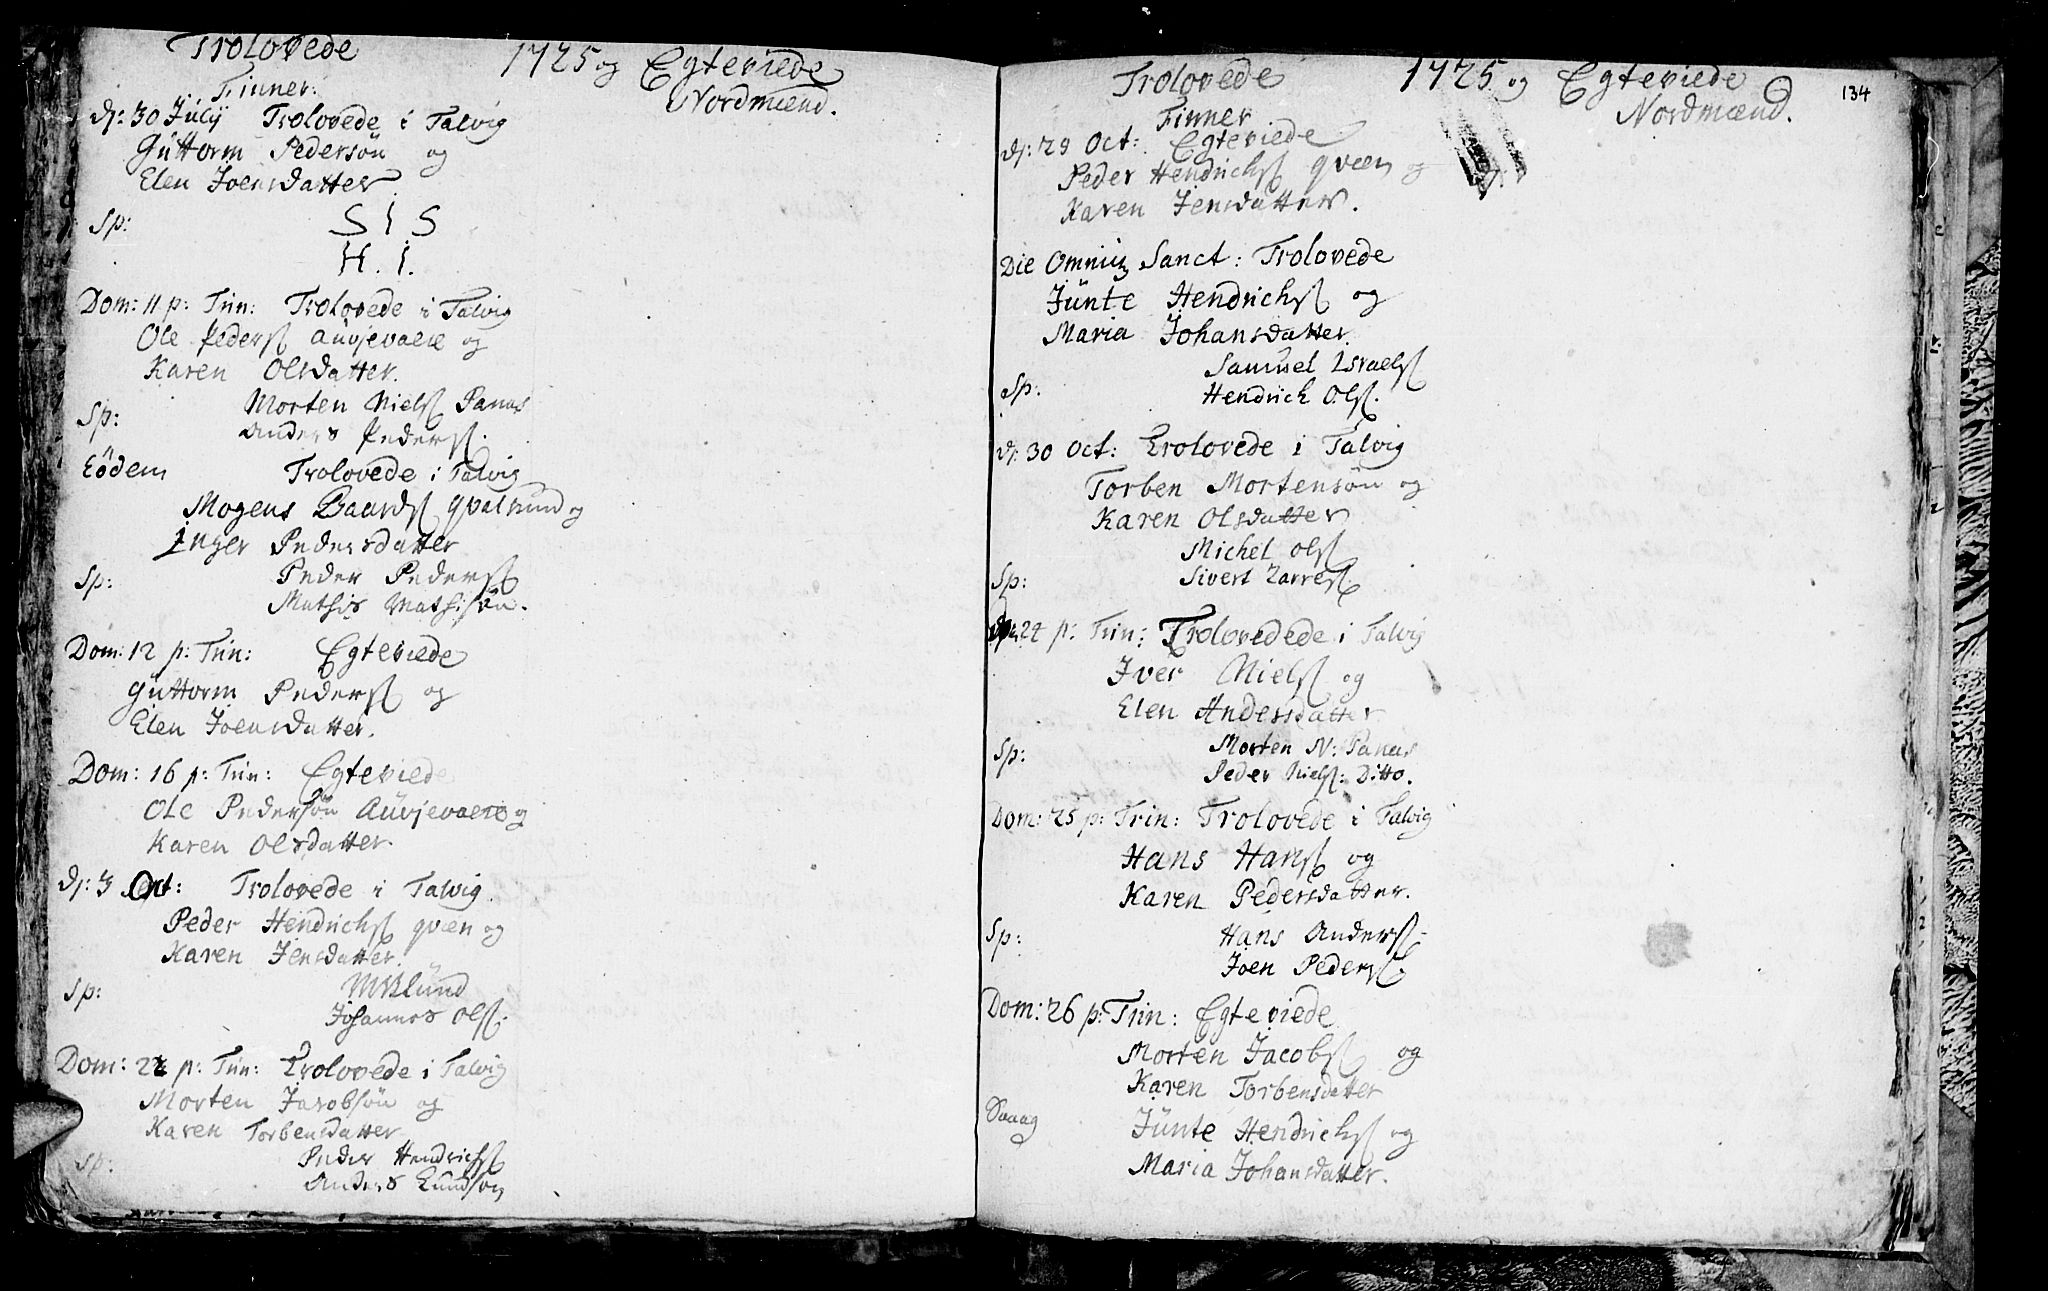 Trolovede 1725 og Egteviede
Finner. Nordmænd.
d: 30 July Trolovede i Talvig
Guttorm Pedersøn og
Elen Joensdatter
Sp: S I S
H. I.
Dom: 11 p: Trin: Trolovede i Talvig
Ole Peders Auvjevaere og
Karen Olsdatter.
Morten Niels Panas
Sp: Anders Peders.
Eodem Trolovede i Talvig
Mogens Baards qvalsund og
Inger Pedersdatter
Sp: Peder Peders
Mathis Mathisøn.
Dom: 12 p: Trin: Egteviede
Guttorm Peders og
Elen Joensdatter.
Dom: 16 p: Trin: Egteviede
Ole Pedersøn Auvjevaere og
Karen Olsdatter.
d: 3 Oct: Trolovede i Talvig
Peder Hendrichs qvæn og
Karen Jensdatter.
Sp: Lund
Johannes Ols.
Dom: 22 p: Trin: Trolovede i Talvig
Morten Jacobsøn og
Karen Torbensdatter
Sp: Peder Hendrichs
Anders Lundson
Trolovede 1725 og Egteviede 134
Finner Nordmænd.
d: 28 Oct: Egteviede
Peder Hendrichs qvæn og
Karen Jensdatter.
Die Omnium Sanct: Trolovede
Junte Hendrichs og
Maria Johansdatter.
Samuel Israels
Sp: Hendrich Ols.
d: 30 Oct: Trolovede i Talvig
Torben Mortensøn og
Karen Olsdatter
Michel Ols
Sp: Sivert Zarres.
24 p: Trin: Trolovedede i Talvig
Iver Niels og
Elen Andersdatter
Sp: Morten N: Panas
Peder Niels: Ditto.
Dom: 25 p: Trin: Trolovede i Talvig
Hans Hans og
Karen Pedersdatter.
Sp: Hans Anders.
Joen Peders.
Dom: 26 p: Trin: Egteviede
Morten Jacobs og
Karen Torbensdatter
Saaog Junte Hendrichs og
Maria Johansdatter.